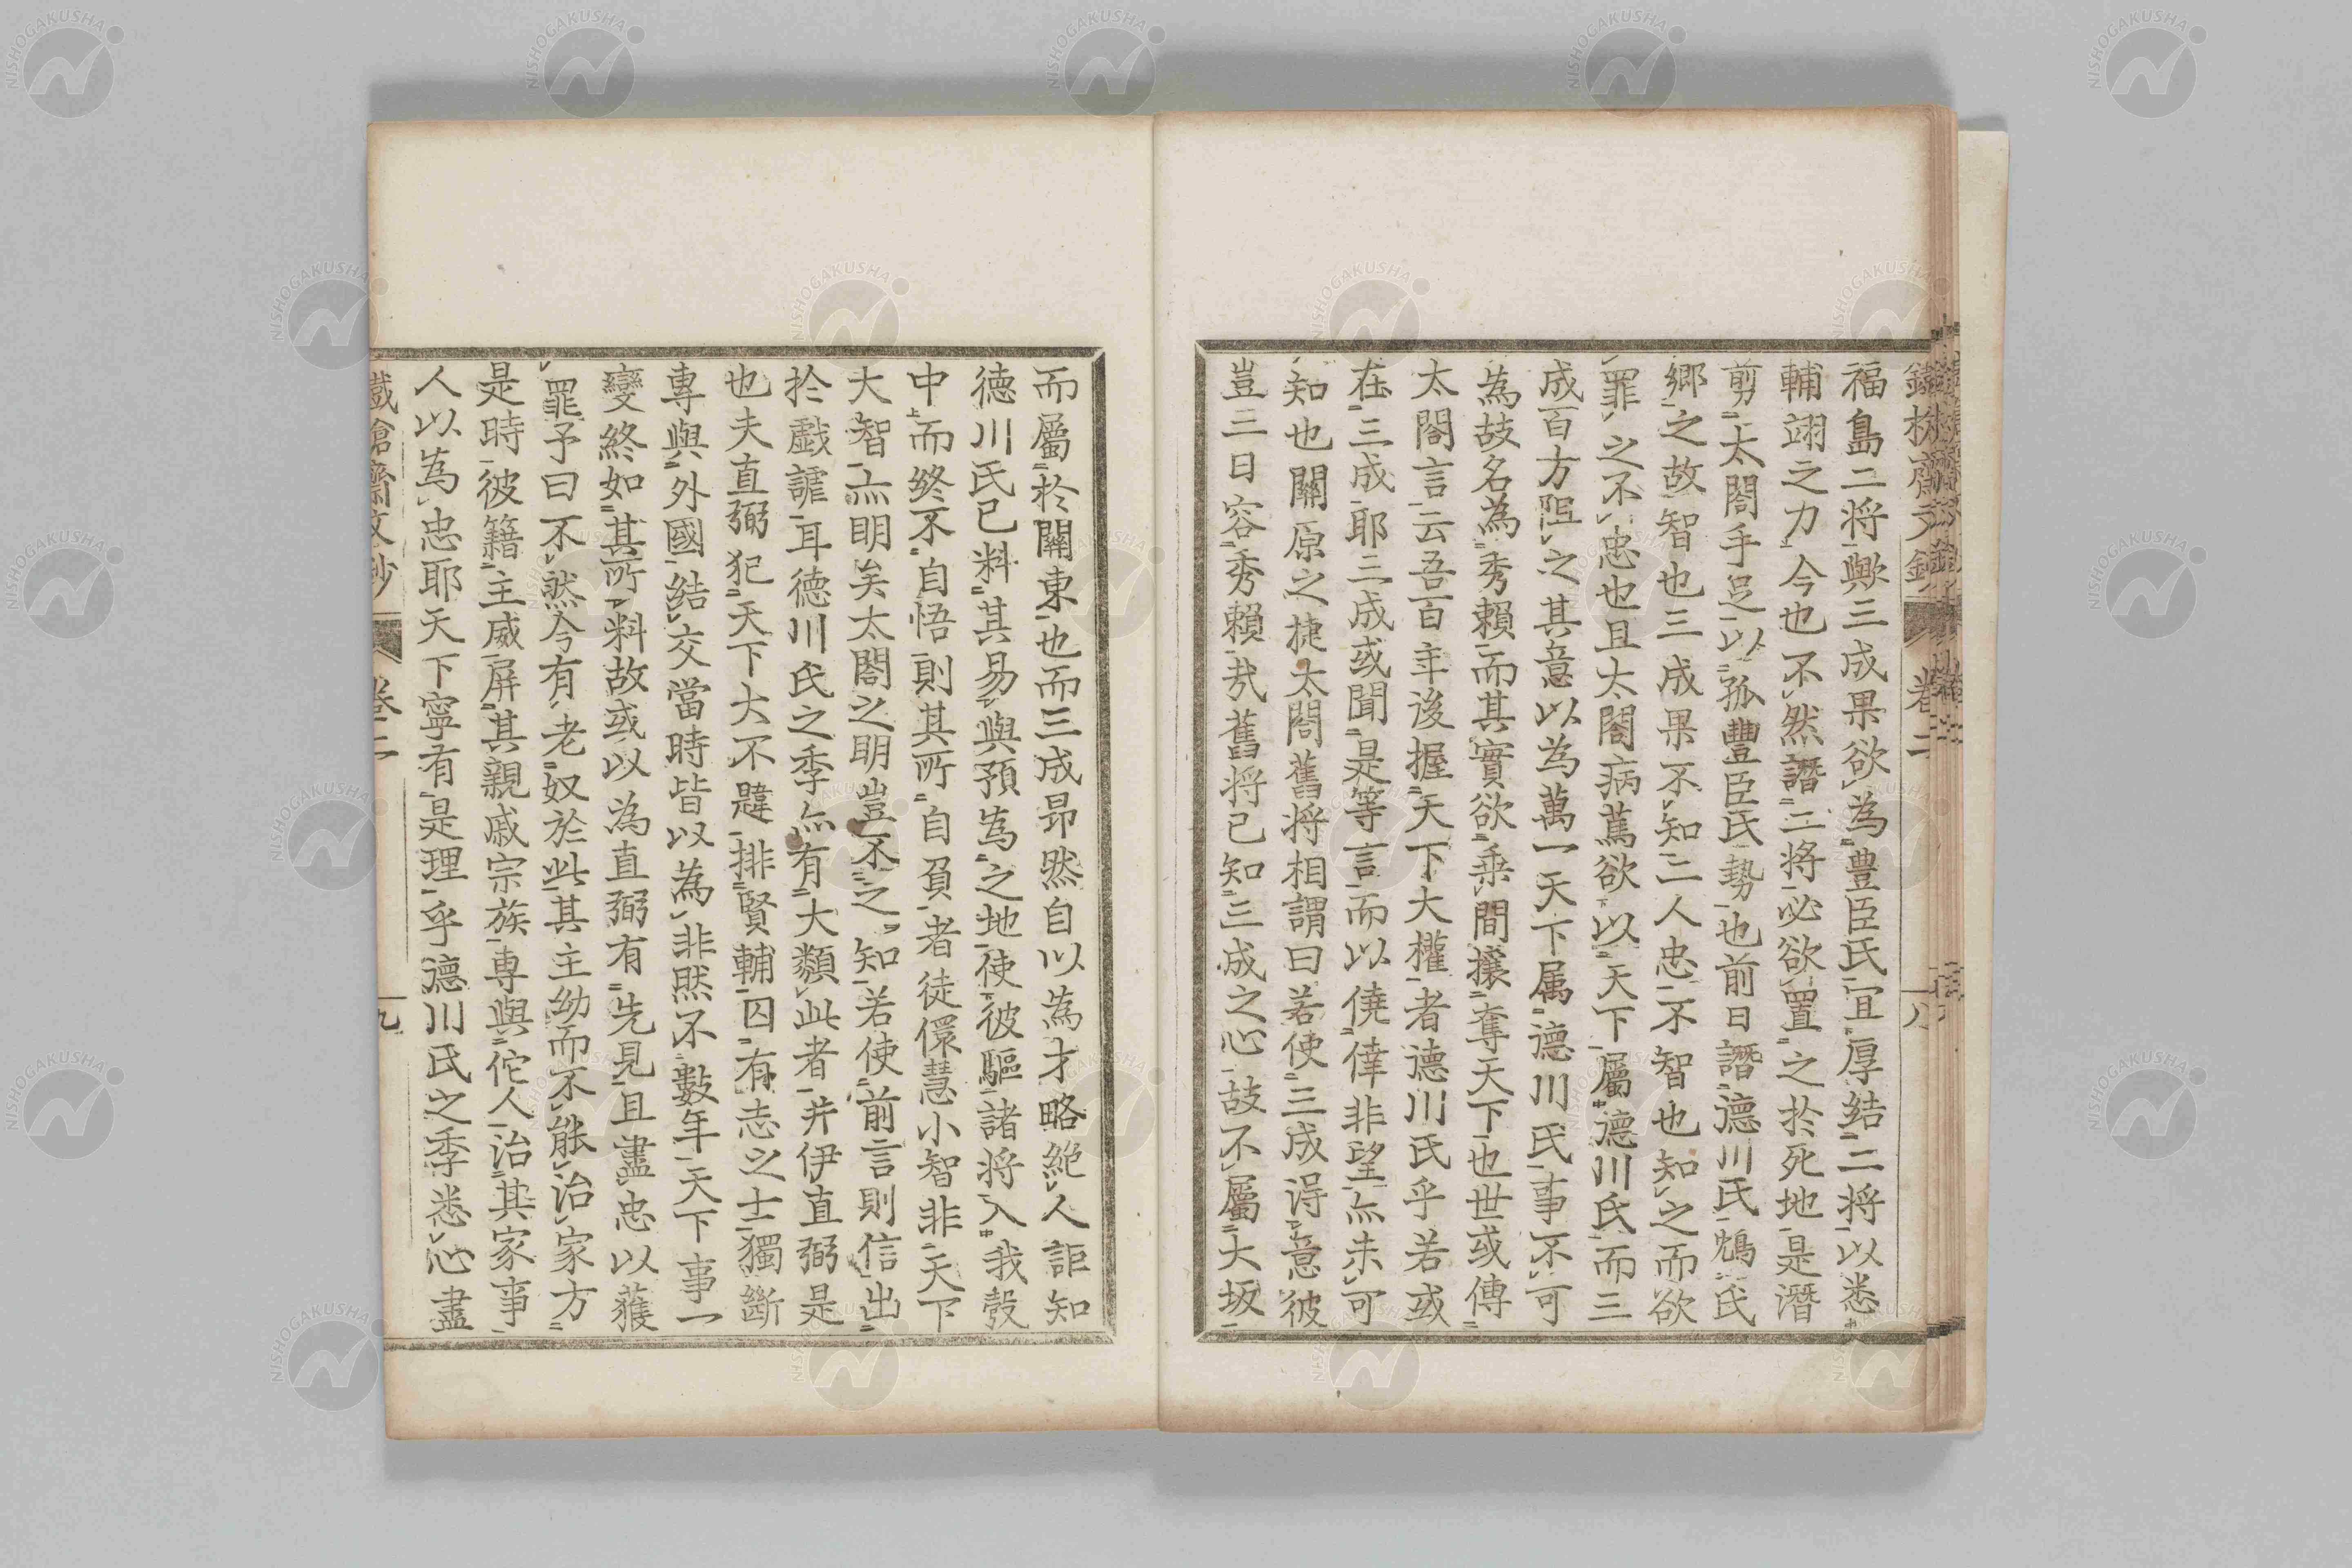 福島二将與三成果欲為豊臣氏宜厚結二将以悉
輔翊之力今也不然譖二将必欲置之於死地是潛
剪太閤手足以孤豐臣氏勢也前日譖德川氏鴆氏
郷之故智也三成果不知二人忠不智也知之而欲
罪之不忠也且太閤病篤欲以天下屬德川氏而三
成百方阻之其意以為萬一天下属德川氏事不可
為故名為秀賴而其實欲乘間攘奪天下也世或傳
太閤言云吾百年後握天下大權者德川氏乎若或
在三成耶三成或聞是等言而以僥倖非望亦未可
知也關原之捷太閤舊将相謂曰若使三成淂意彼
豈三日容秀賴㢤舊将已知三成之心故不屬大坂
而屬於關東也而三成昂然自以為才略絶人詎知
德川氏已料其易與預為之地使彼驅諸将入我彀
中而終不自悟則其所自負者徒儇慧小智非天下
大智亦明矣太閤之明豈不之知若使前言則信出
於戲謔耳德川氏之季亦有大類此者井伊直弼是
也夫直弼犯天下大不韙排賢輔囚有志之士獨斷
專與外國結交當時皆以為非然不數年天下事一
變終如其所料故或以為直弼有先見且盡忠以獲
罪予曰不然今有老奴於此其主幼而不能治家方
是時彼籍主威屏其親戚宗族専與佗人治其家事
人以為忠耶天下寧有是理乎德川氏之季悉心盡
齋文鈔
卷二
九